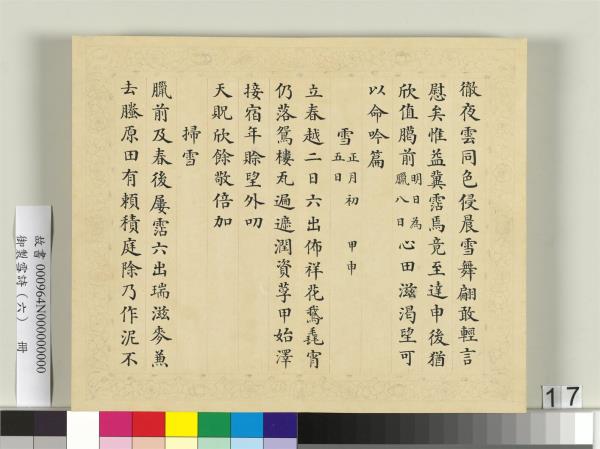 徹夜雲同色侵晨雪舞翩敢輕言
慰矣惟益冀霑焉竟至達申後猶
欣值臈前明日為臘八日心田滋渴望可
以命吟篇
雪正月初五日 甲申
立春越二日六出佈祥花鵞毳宵
仍落鴛樓瓦遍遮潤資荸甲始澤
接宿年賖望外叨
天貺欣餘敬倍加
掃雪
臘前及春後屢霑六出瑞滋麥蒸
去塍原田有頼積庭除乃作泥不
故書 000964N000000000
御製雪詩(六) 冊
17